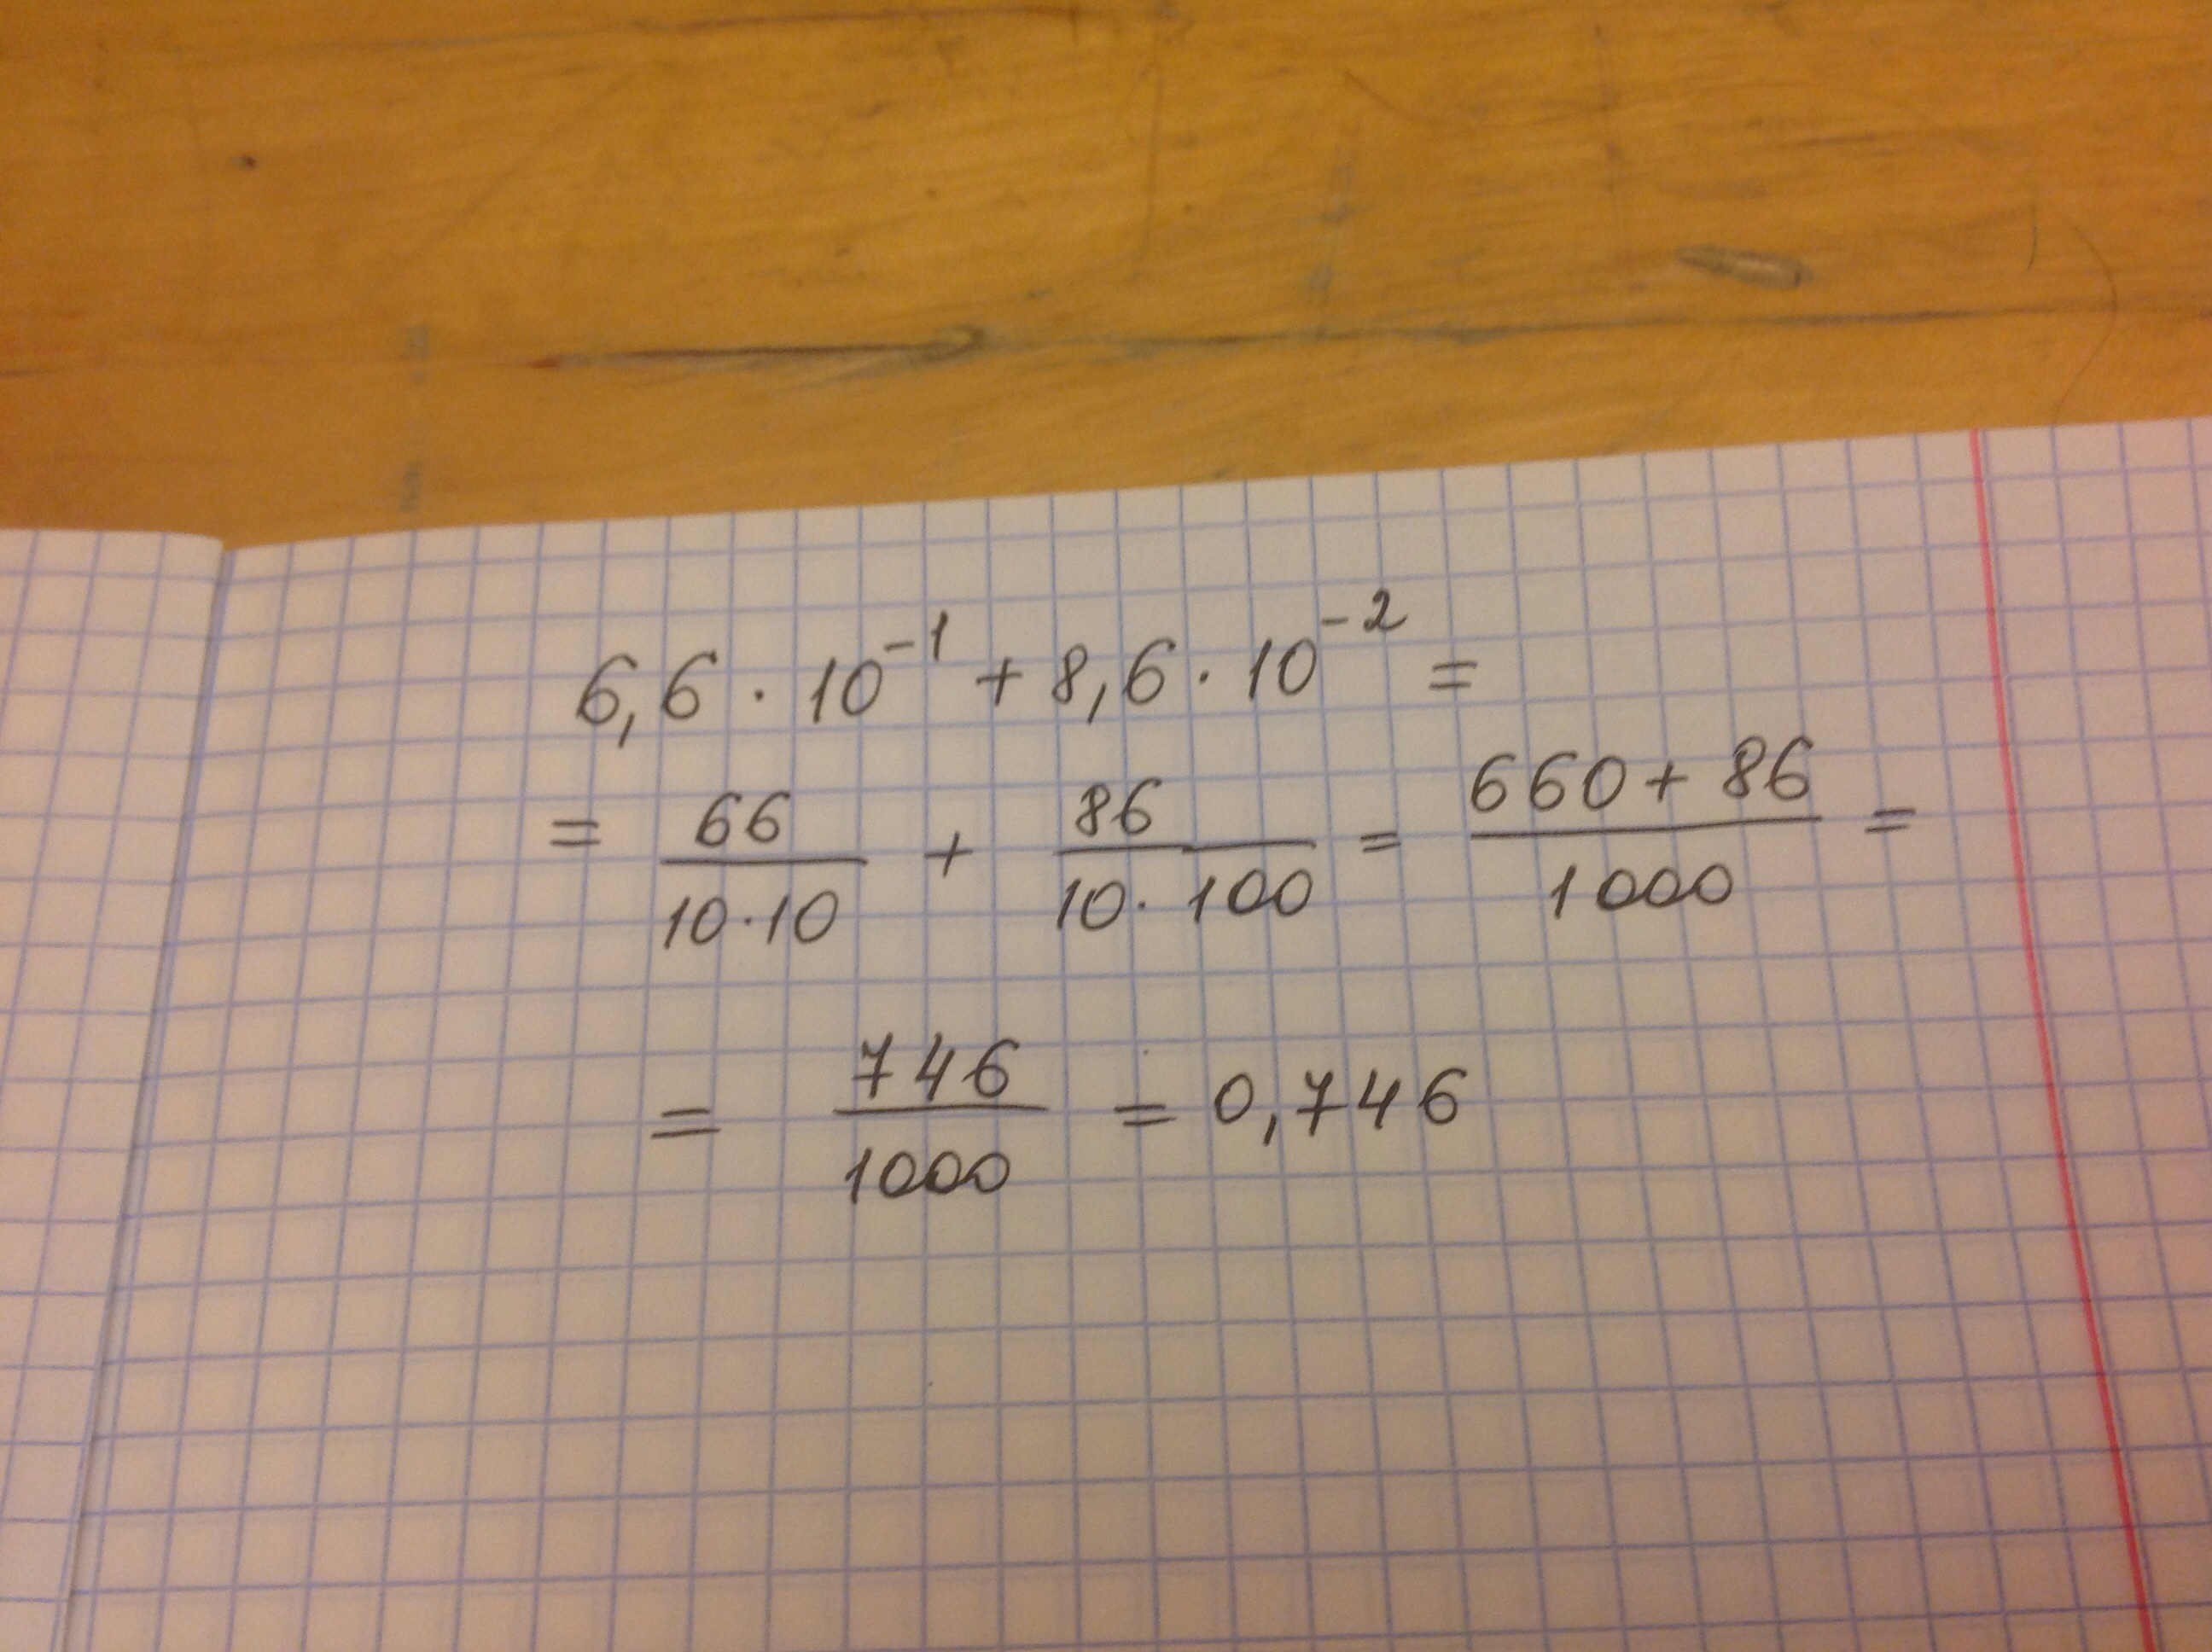 6,6 · 10⁻¹ + 8,6 · 10⁻² =
= 66/(10·10) + 86/(10·100) = (660+86)/1000 =
= 746/1000 = 0,746